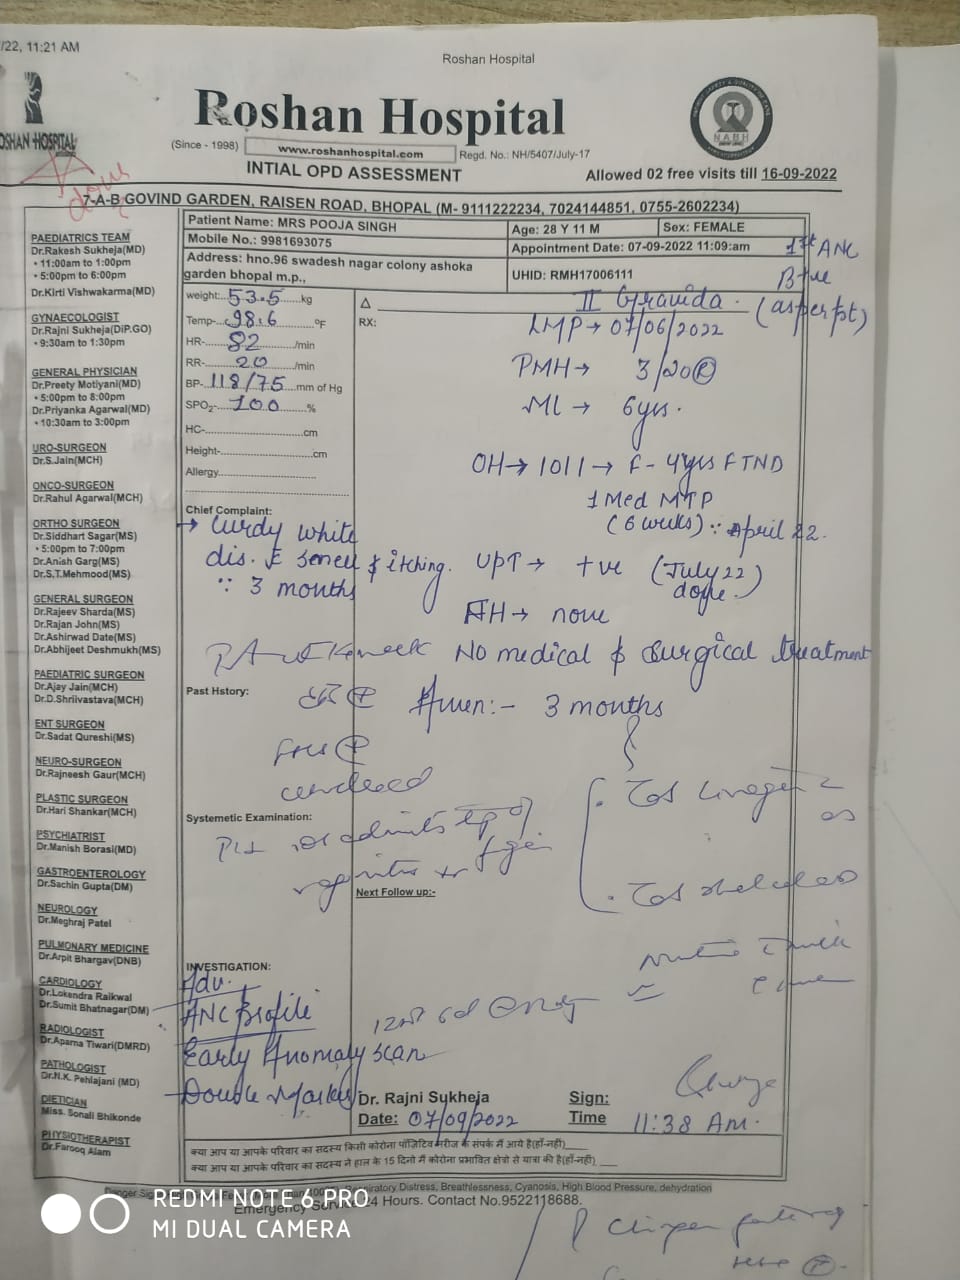 /22, 11:21 AM
Roshan Hospital
ROSHAN HOSPITAL
Roshan Hospital
(Since - 1998)
www.roshanhospital.com
Regd. No.: NH/5407/July-17
NABH
INTIAL OPD ASSESSMENT
Allowed 02 free visits till 16-09-2022
7-A-B GOVIND GARDEN, RAISEN ROAD, BHOPAL (M- 9111222234, 7024144851, 0755-2602234)
Patient Name: MRS POOJA SINGH
Age: 28 Y 11 M
Sex: FEMALE
Mobile No.: 9981693075
Appointment Date: 07-09-2022 11:09:am
Address: hno.96 swadesh nagar colony ashoka
garden bhopal m.p.,
UHID: RMH17006111
1st ANC
B +ve
(as per pt)
PAEDIATRICS TEAM
Dr.Rakesh Sukheja(MD)
• 11:00am to 1:00pm
• 5:00pm to 6:00pm
Dr.Kirti Vishwakarma(MD)
GYNAECOLOGIST
Dr.Rajni Sukheja(DiP.GO)
• 9:30am to 1:30pm
GENERAL PHYSICIAN
Dr.Preety Motiyani(MD)
• 5:00pm to 8:00pm
Dr.Priyanka Agarwal(MD)
• 10:30am to 3:00pm
URO-SURGEON
Dr.S.Jain(MCH)
ONCO-SURGEON
Dr.Rahul Agarwal(MCH)
ORTHO SURGEON
Dr.Siddhart Sagar(MS)
• 5:00pm to 7:00pm
Dr.Anish Garg(MS)
Dr.S.T.Mehmood(MS)
GENERAL SURGEON
Dr.Rajeev Sharda(MS)
Dr.Rajan John(MS)
Dr.Ashirwad Date(MS)
Dr.Abhijeet Deshmukh(MS)
PAEDIATRIC SURGEON
Dr.Ajay Jain(MCH)
Dr.D.Shriivastava(MCH)
ENT SURGEON
Dr.Sadat Qureshi(MS)
NEURO-SURGEON
Dr.Rajneesh Gaur(MCH)
PLASTIC SURGEON
Dr.Hari Shankar(MCH)
PSYCHIATRIST
Dr.Manish Borasi(MD)
GASTROENTEROLOGY
Dr.Sachin Gupta(DM)
NEUROLOGY
Dr.Meghraj Patel
PULMONARY MEDICINE
Dr.Arpit Bhargav(DNB)
CARDIOLOGY
Dr.Lokendra Raikwal
Dr.Sumit Bhatnagar(DM)
RADIOLOGIST
Dr.Aparna Tiwari(DMRD)
PATHOLOGIST
Dr.N.K. Pehlajani (MD)
DIETICIAN
Miss. Sonali Bhikonde
PHYSIOTHERAPIST
Dr.Farooq Alam
weight: 53.5 kg
Temp- 98.6 °F
HR- 82 /min
RR- 20 /min
BP- 118/75 mm of Hg
SPO2- 100 %
HC- cm
Height- cm
Allergy
Chief Complaint:
→ Curdy white
dis. c smell & itching.
∵ 3 months
Past Hstory:
Systemetic Examination:
INVESTIGATION:
Adv.
ANC Profile
Early Anomaly scan
Double Marker
Δ II Gravida.
RX:
LMP → 07/06/2022
PMH → 3/20 R
ML → 6yrs.
OH → 1011 → F - 4yrs FTND
1 Med MTP
(6 weeks) ∵ April 22.
UPT → +ve (July 22)
done.
FH → none
No medical & surgical treatment
Amen:- 3 months
Next Follow up:-
Dr. Rajni Sukheja
Sign:
Date: 07/09/2022
Time 11:38 AM.
क्या आप या आपके परिवार का सदस्य किसी कोरोना पॉज़िटिव मरीज के संपर्क में आये है(हाँ-नहीं)
क्या आप या आपके परिवार का सदस्य ने हाल के 15 दिनो में कोरोना प्रभावित क्षेत्रो से यात्रा की है(हाँ-नहीं)
Respiratory Distress, Breathlessness, Cyanosis, High Blood Pressure, dehydration
Emergency Service 24 Hours. Contact No.9522118688.
REDMI NOTE 6 PRO
MI DUAL CAMERA